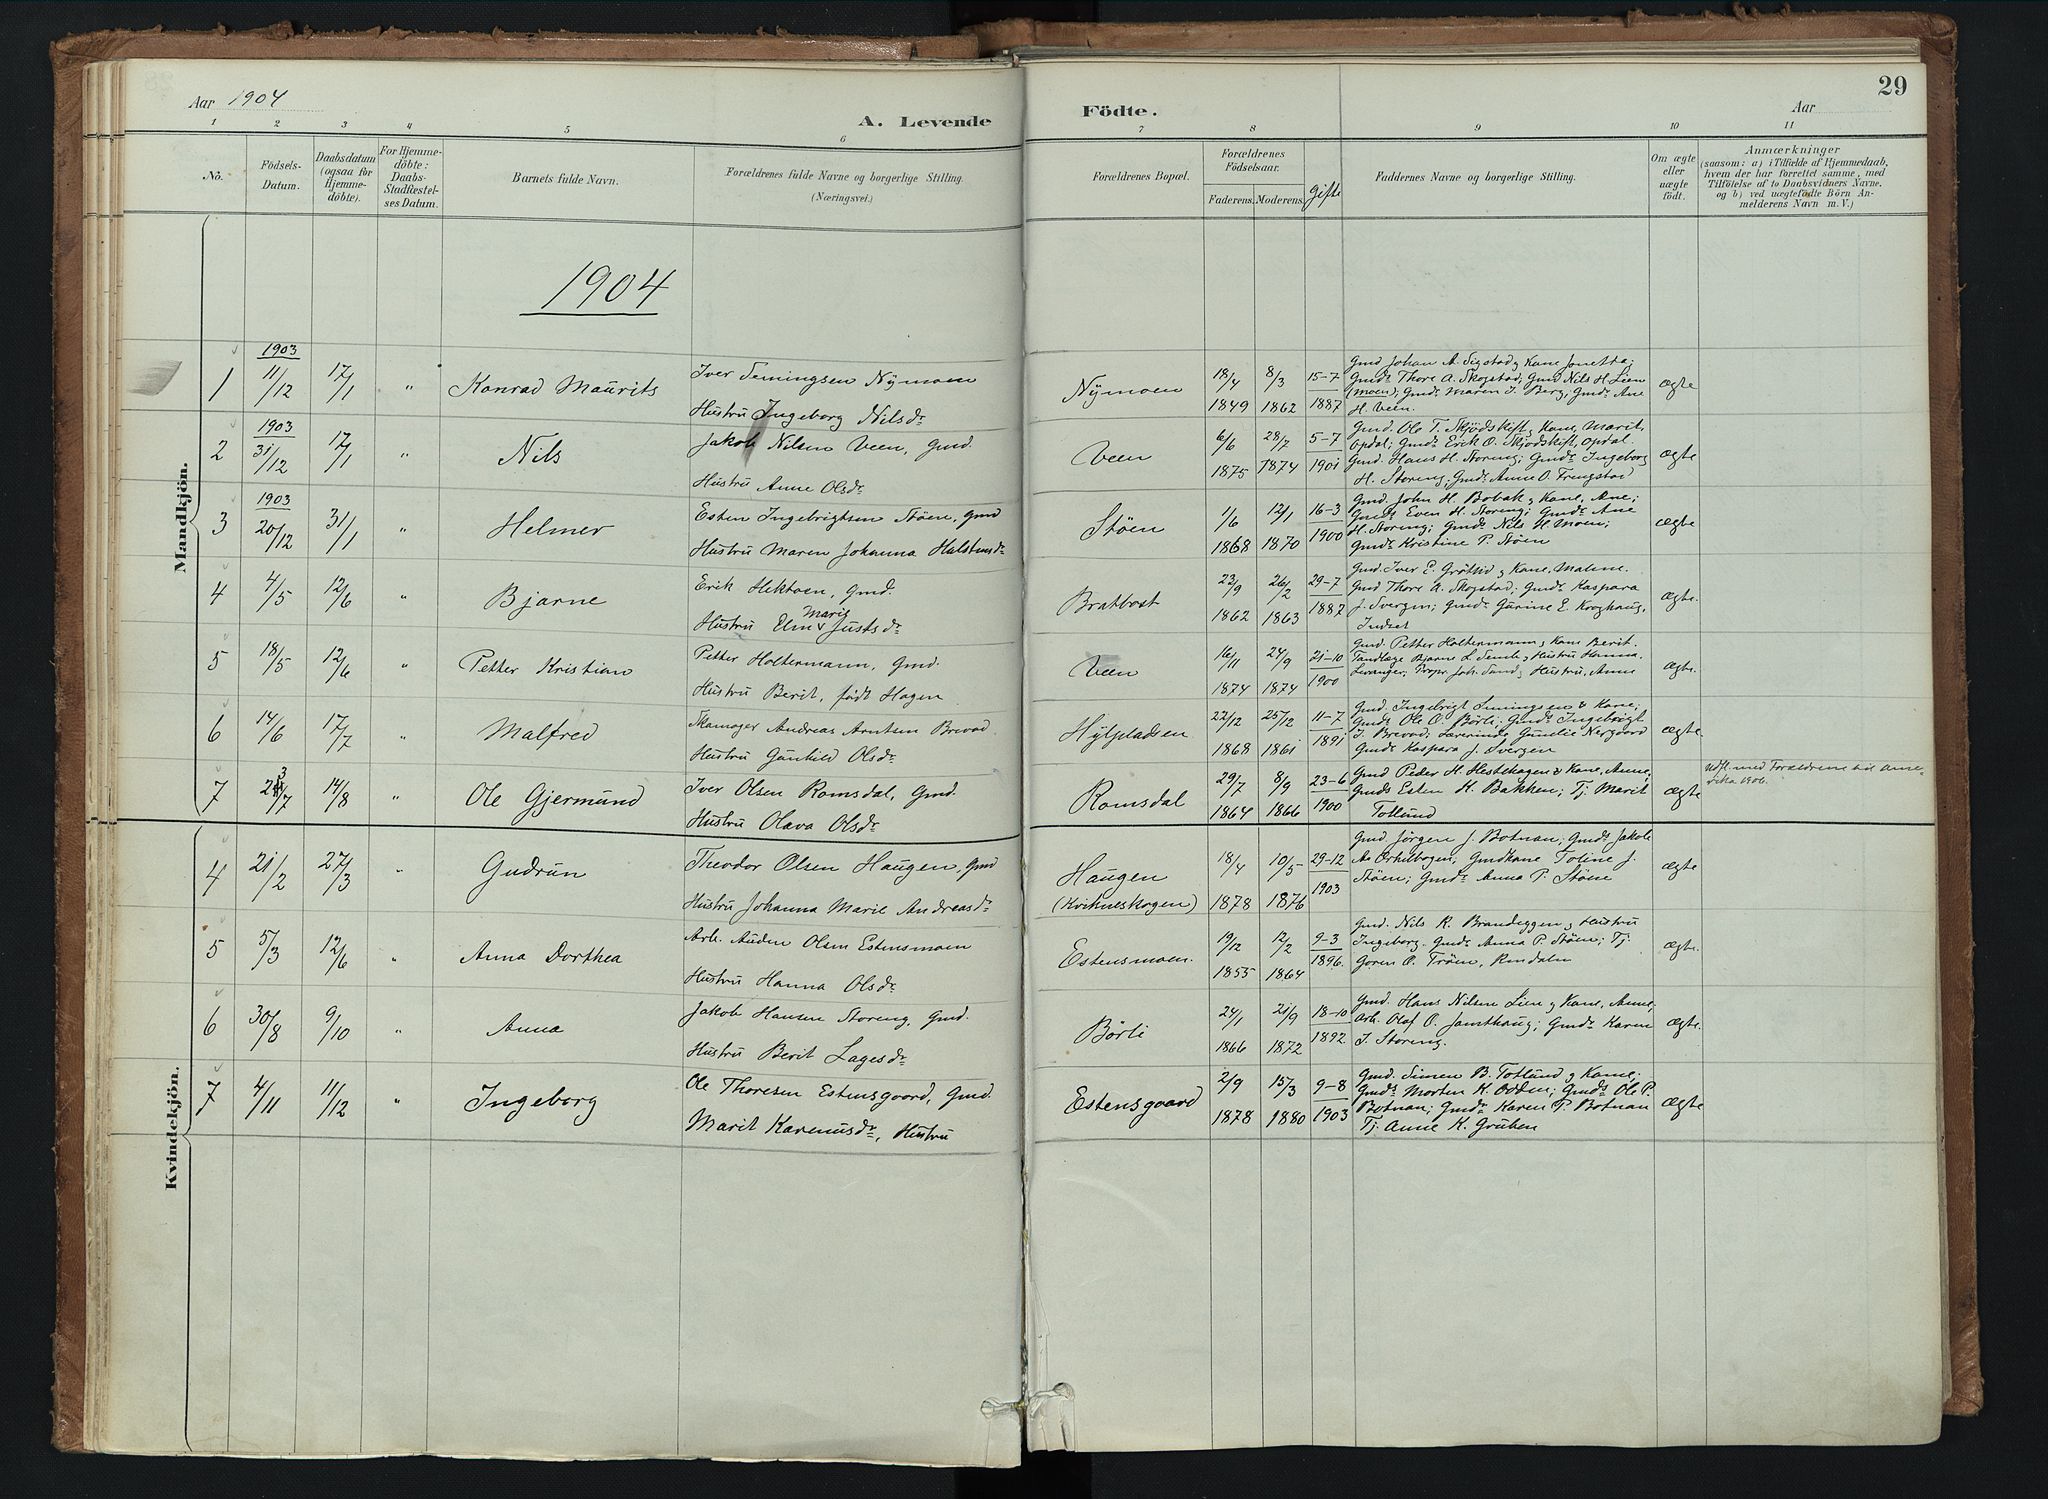 Aar 1904
A. Levende
Födte.
Aar
29
1 2 3 4 5 6 7 8 9 10 11
No.
Födsels-
Datum.
Daabsdatum
(ogsaa for
Hjemme-
döbte).
For Hjemme-
döbte:
Daabs-
Stadfæstel-
ses Datum.
Barnets fulde Navn.
Forældrenes fulde Navne og borgerlige Stilling.
(Næringsvei.)
Forældrenes Bopæl.
Forældrenes
Födselsaar.
Faderens. Moderens.
Gifte
Faddernes Navne og borgerlige Stilling.
Om ægte
eller
uægte
födt.
Anmærkninger
(saasom: a) i Tilfælde af Hjemmedaab,
hvem der har forrettet samme, med
Tilföielse af to Daabsvidners Navne,
og b) ved uægtefödte Börn An-
melderens Navn m. V.)
1904
Mandkjön.
1903
1 11/12 17/1 " Konrad Maurits
Iver Nÿmoen
Hustru Ingeborg Nilsdr
Nÿmoen
18/4 8/3 15-7
1849 1862 1887
Gmd Johan A. Sigstad & Kone Jonetta;
Gmds Thore A. Skogstad; Gmd Nils H. Lien
(Moen); Gmdr Maren I. Berg, Gmdr Ane
H. Veen.
ægte
1903
2 31/12 17/1 " Nils
Jakob Nilsen Veen, Gmd
Hustru Anne Olsdr
Veen
6/6 28/7 5-7
1875 1874 1901
Gmd. Ole T. Skjödskift, Kone, Marit,
Opdal; Gmds Erik O. Skjödskift, Opdal.
Gmd. Hans H. Storeng; Gmdr Ingeborg
H. Storeng, Gmdr Anne O. Frengstad
ægte
1903
3 20/12 31/1 " Helmer
Esten Ingebrigtsen Støen, Gmd
Hustru Maren Johanna Halstensdr
Støen
1/6 12/1 16-3
1868 1870 1900
Gmd. John H. Bobak & Kone, Ane;
Gmds Even H. Storeng; Gmdr Ane
H. Storeng; Gmds Nils H. Moen;
Gmdr Kristine P. Støen
ægte
4 4/5 12/6 " Bjarne
Erik Hektoen, Gmd.
Marie
Hustru Justsdr
Bratbost
23/9 26/2 29-7
1862 1863 1887
Gmd. Iver E. Grøtlid & Kone, Malene.
Gmd Thore A. Skogstad. Gmdr Kaspara
J. Svergen; Gmdr Gurine E. Kroghaug,
Indset
ægte.
5 18/5 12/6 " Petter Kristian
Petter Holtermann, Gmd.
Hustru Berit, født Hagen
Veen
16/11 24/9 21-10
1874 1874 1900
Gmd. Petter Holtermann, Kone Berit.
Tandlæge Bjarne L. Semb & Hustru Hanna.
Levanger; Propr. Joh. Sand & Hustru, Anne
ægte.
6 14/6 17/7 " Malfred
Skomager Andreas Arntsen Brevad
Hustru Gunhild Olsdr
Hÿtpladsen
22/12 25/12 11-7
1868 1861 1891
Gmd. Ingebrigt & Kone;
Gmds Ole O. Børli; Gmds Ingebrigt
J. Brevad; Lærerinde Gunelie Nergaard
Gmdr Kaspara J. Svergen
ægte
7 23/7 14/8 " Ole Gjermund
Iver Olsen Romsdal, Gmd.
Hustru Olava Olsdr
Romsdal
29/7 8/9 23-6
1864 1866 1900
Gmd Peder H. Hestehagen & Kone, Anne,
Gmds Esten H. Bakken; Tj. Marit
Totlund
ægte
Udfl. med Forældrene til Ame-
rika 1906.
Kvindekjön.
4 21/2 27/3 " Gudrun
Theodor Olsen Haugen, Gmd
Hustru Johanna Marie Andreasdr
Haugen
(Kvikneskogen)
18/4 10/5 29-12
1878 1876 1903
Gmd Jørgen J. Botnan; Gmds Jakob
A. Orkelbogen, Gmdkone Toline J.
Støen; Gmdr Anna P. Støen
ægte
5 5/3 12/6 " Anna Dorthea
Arb. Auden Olsen Estensmoen
Hustru Hanna Olsdr
Estensmoen.
19/12 12/2 9-3
1855 1864 1896.
Gmd. Nils R. Brandeggen & Hustru
Ingeborg. Gmdr Anna P. Støen; Tj.
Goren O. Trøen, Rendalen
ægte.
6 30/8 9/10 " Anna
Jakob Hansen Storeng, Gmd.
Hustru Berit Lagesdr
Børli
24/1 21/9 18-10
1866 1872 1892
Gmd. Hans Nilsen Lien & Kone, Anne,
Arb. Olaf O. Jamthaug; Gmdr Karen
J. Storeng.
ægte.
7 4/11 11/12 " Ingeborg
Ole Thoresen Estensgaard, Gmd.
Marit Karenusdr, Hustru
Estensgaard
2/9 15/3 9-8
1878 1880 1903
Gmd. Simen B. Totlund & Kone;
Gmds Morten K. Odden, Gmds Ole P.
Botnan; Gmdr Karen P. Botnan
Tj. Anne K. Gruben
ægte